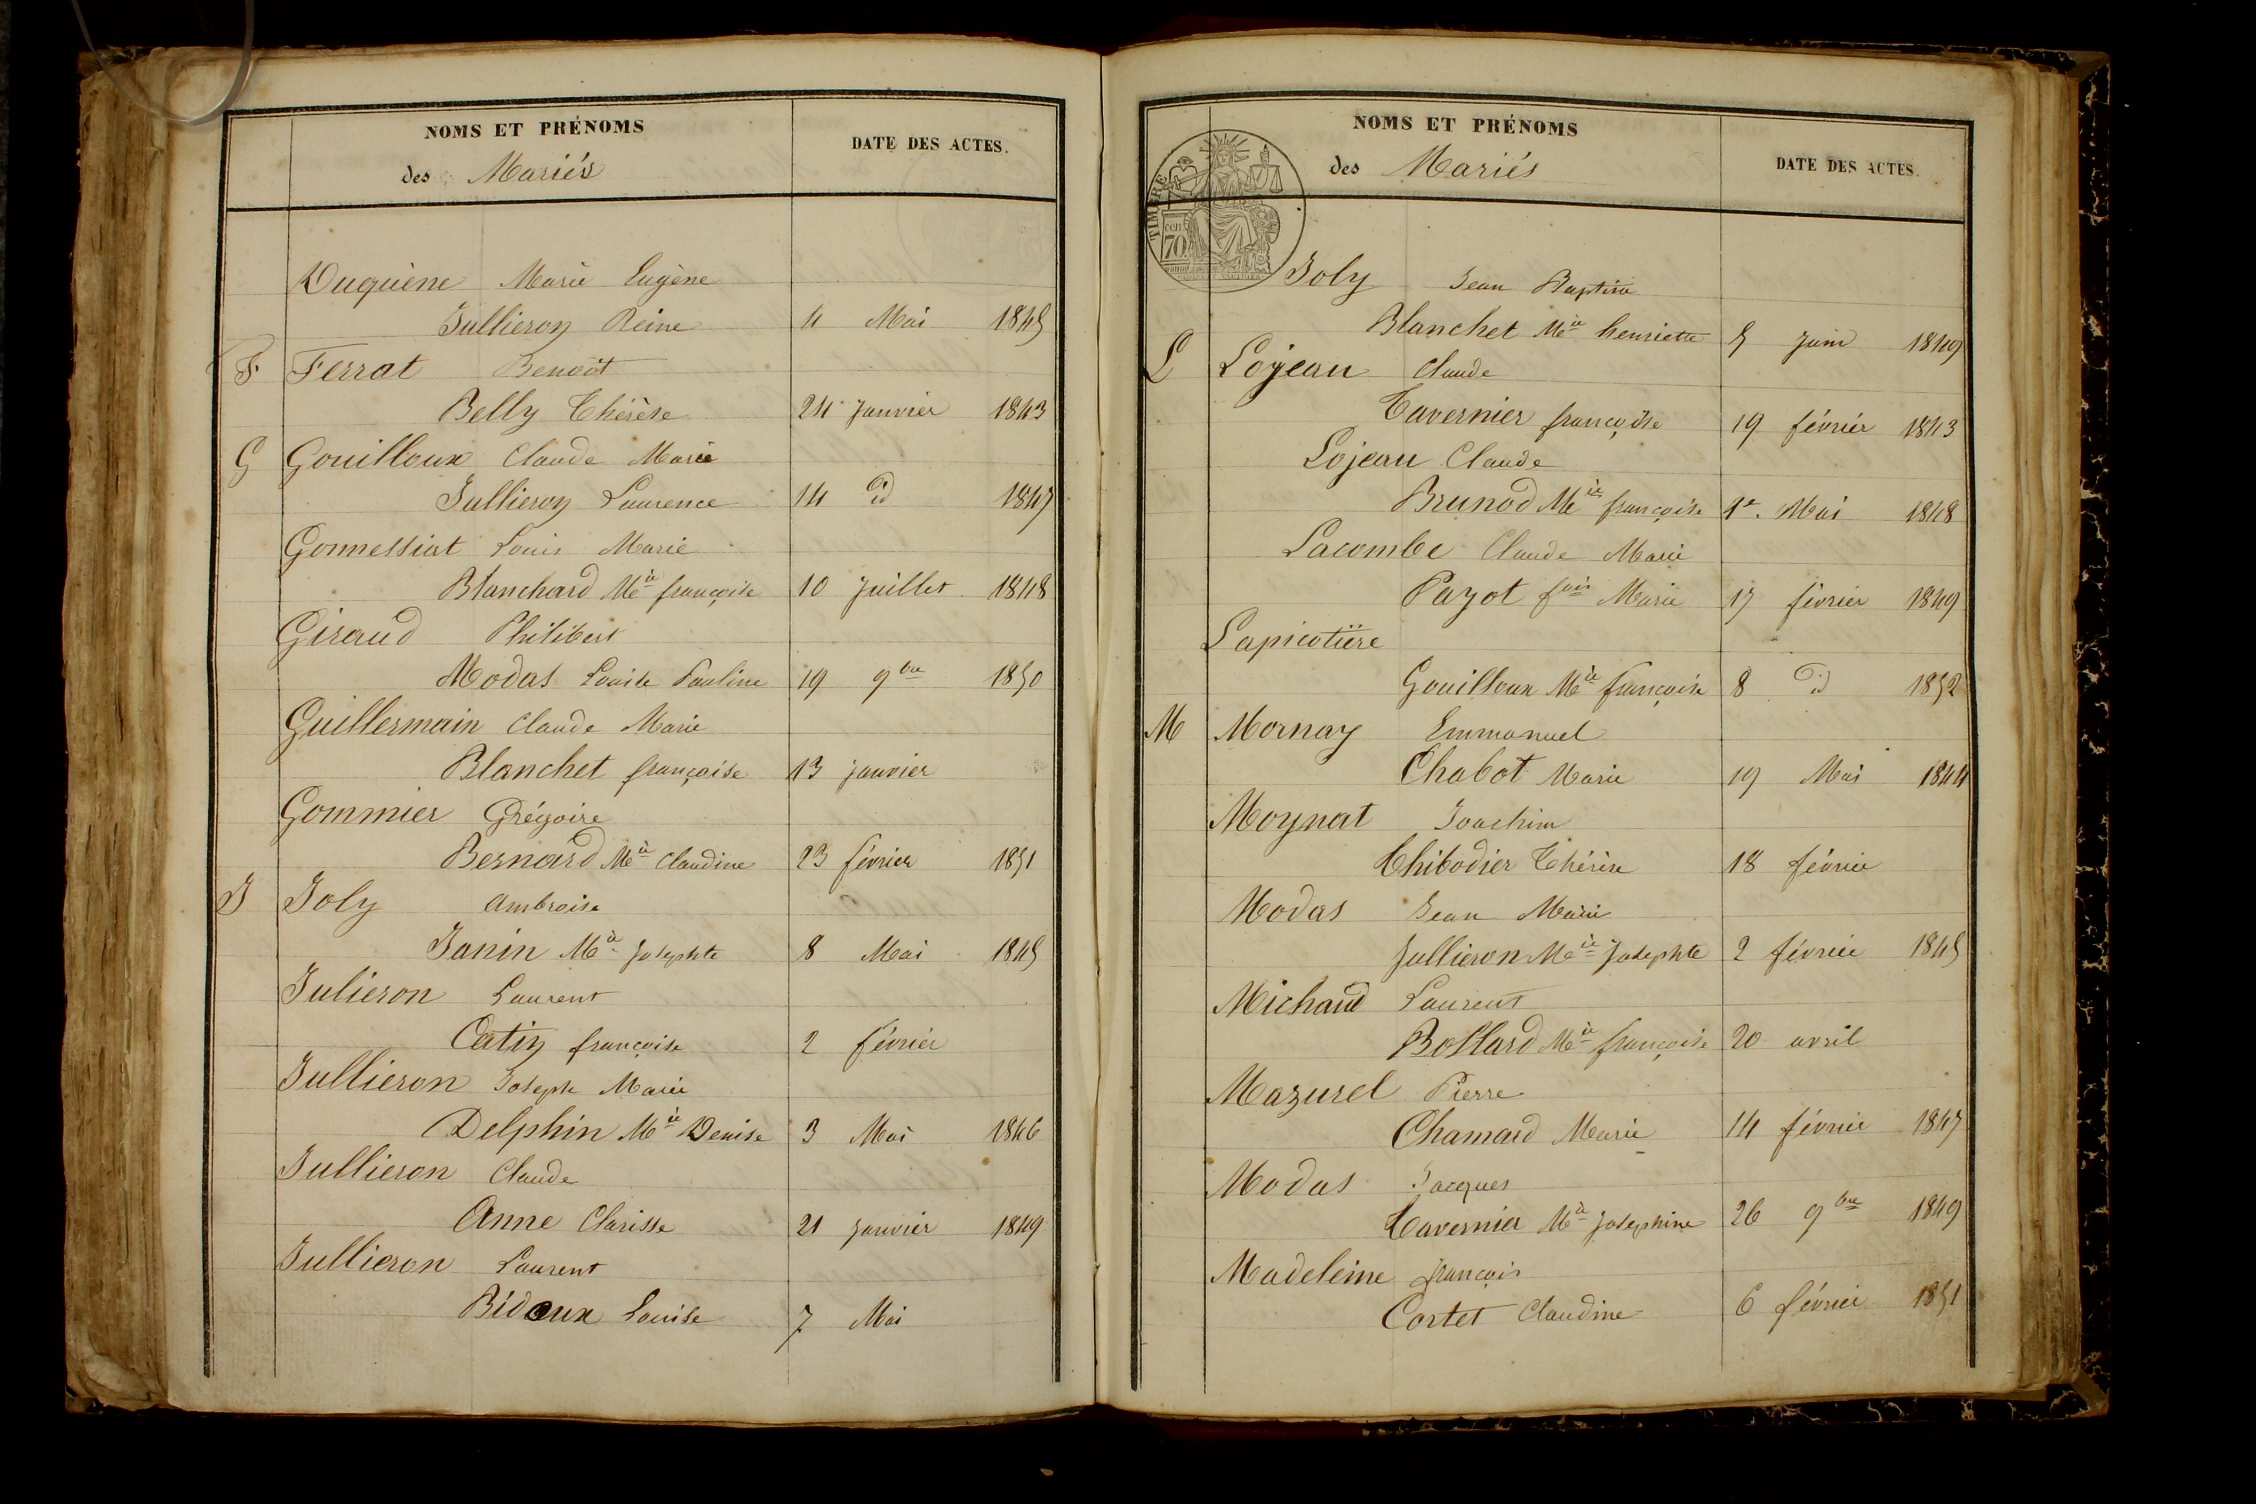 NOMS ET PRÉNOMS
des Mariés
DATE DES ACTES.
Duquène Marie Eugène
Jullieron Reine 4 Mai 1845
F Ferrat Benoit
Belly Thérèse 24 Janvier 1843
G Gouilloux Claude Marie
Jullieron Laurence 14 d 1847
Gonnessiat Louis Marie
Blanchard Mie françoise 10 Juillet 1848
Giraud Philibert
Modas Louise Pauline 19 9bre 1850
Guillermain Claude Marie
Blanchet françoise 13 janvier
Gommier Grégoire
Bernard Mie Claudine 23 février 1851
J Joly Ambroise
Janin Mie Josephte 8 Mai 1845
Julieron Laurent
Catin françoise 2 février
Jullieron Joseph Marie
Delphin Mie Denise 3 Mai 1846
Jullieron Claude
Anne Clarisse 21 janvier 1849
Jullieron Laurent
Bidoux Louise 7 Mai
NOMS ET PRÉNOMS
des Mariés
DATE DES ACTES.
TIMBRE
cen
70
Joly Jean Baptiste
Blanchet Mie henriette 5 Juin 1849
L Lojeau Claude
Tavernier françoise 19 février 1843
Lojeau Claude
Brunod Mie françoise 1er. Mai 1848
Lacombe Claude Marie
Payot foise Marie 17 février 1849
Lapicotière
Gouilloux Mie françoise 8 d 1852
M Mornay Emmanuel
Chabot Marie 19 Mai 1844
Moynat Joachim
Thibodier Thérèse 18 février
Modas Jean Marie
Jullieron Mie Josephte 2 février 1845
Michaud Laurent
Bollard Mie françoise 20 avril
Mazurel Pierre
Chamard Marie 14 février 1847
Modas Jacques
Tavernier Mie Josephine 26 9bre 1849
Madeleine françois
Cortet Claudine 6 février 1851